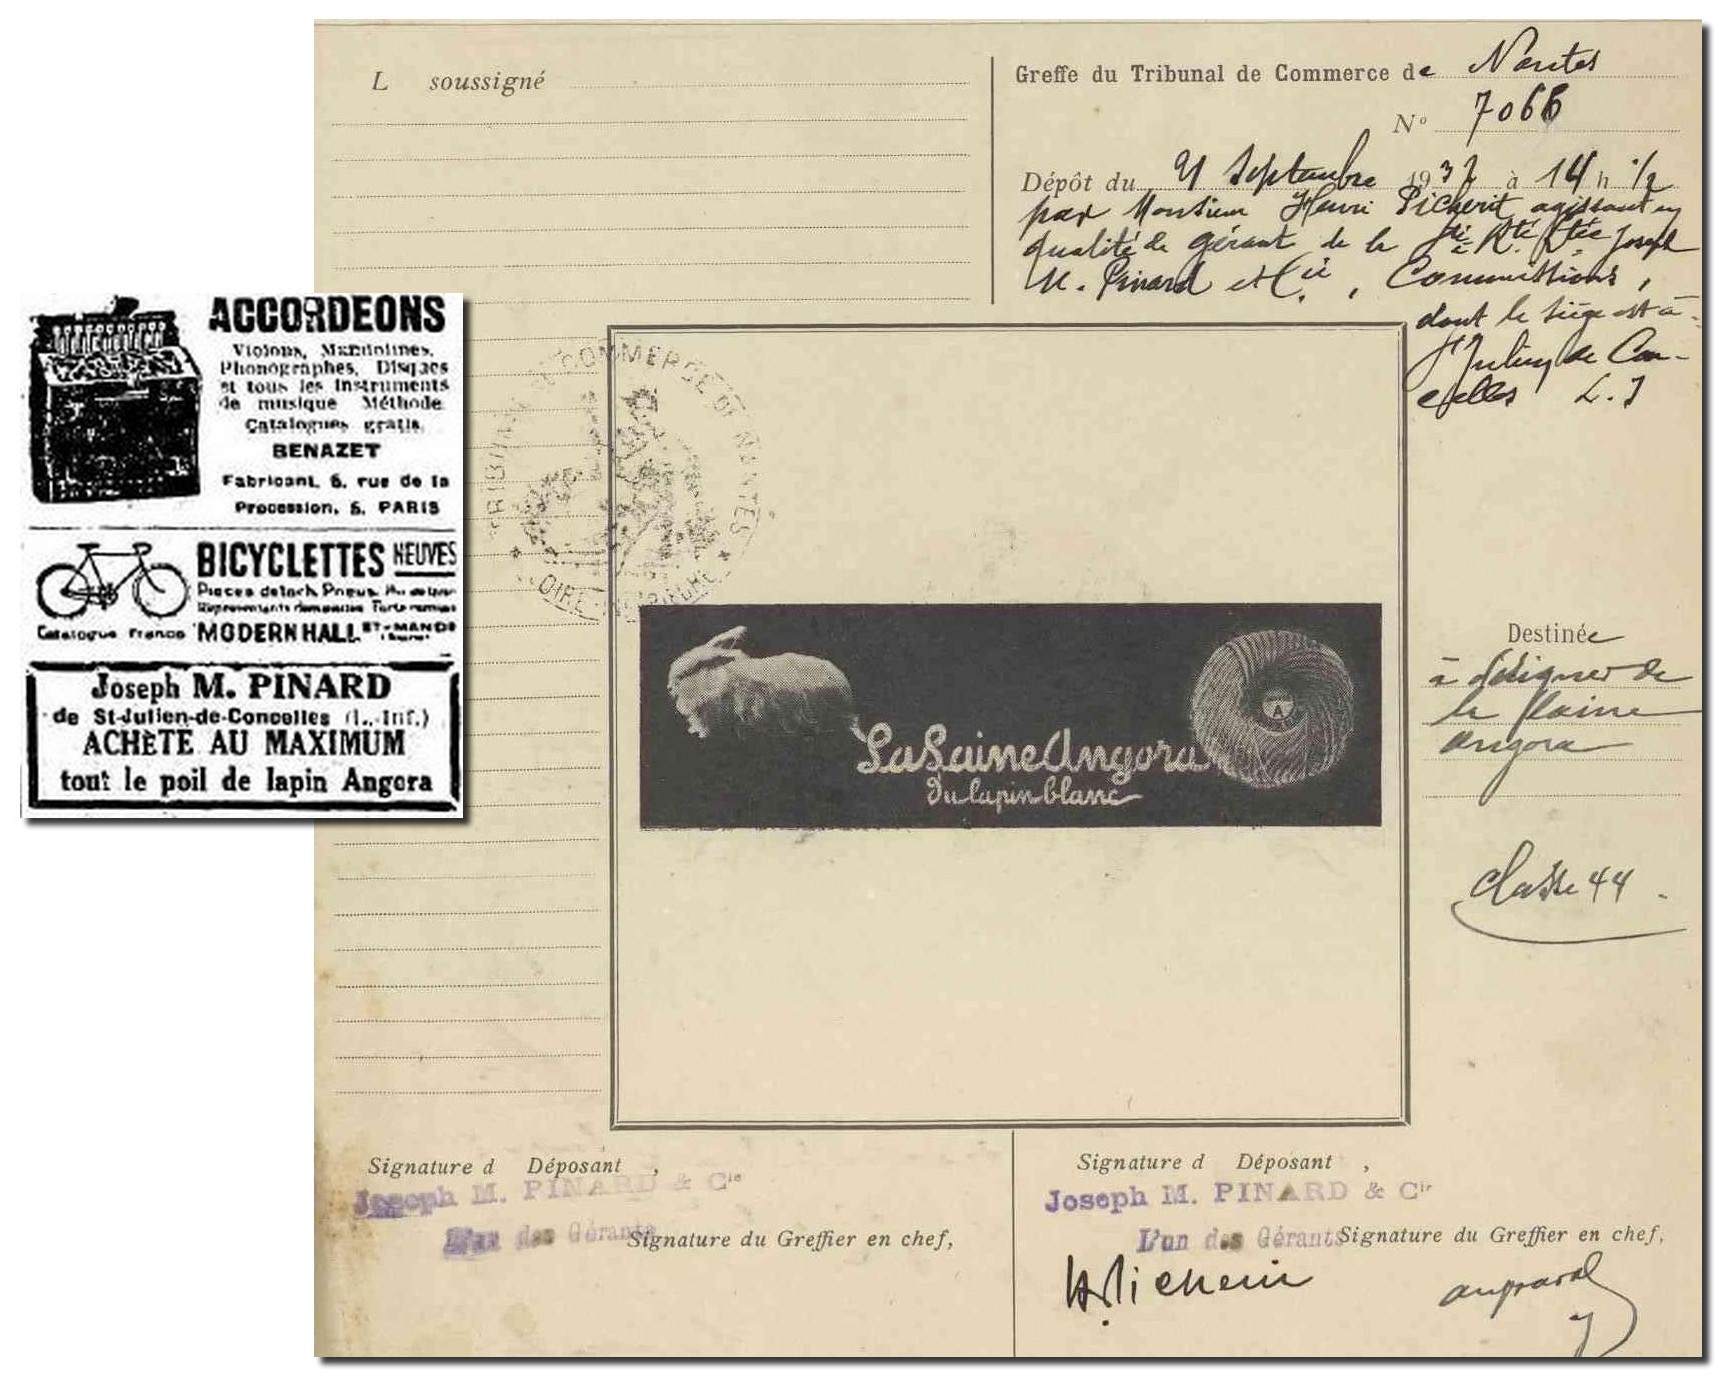 ACCORDEONS
Violons, Mandolines,
Phonographes, Disques
et tous les instruments
de musique Méthode
Catalogues gratis
BENAZET
Fabricant, 6, rue de la
Procession, 6, PARIS
BICYCLETTES NEUVES
Pieces detach. Pneus
Catalogue franco MODERN HALL ST-MANDE
Joseph M. PINARD
de St-Julien-de-Concelles (L.-Inf.)
ACHÈTE AU MAXIMUM
tout le poil de lapin Angora
L soussigné
Greffe du Tribunal de Commerce de Nantes
N° 7066
Dépôt du 21 Septembre 1932 à 14 h 1/2
par Monsieur Henri Picherit agissant en
qualité de gérant de la Sté Joseph
M. Pinard et Cie, Commissions,
dont le siège est à
St Julien de Con-
celles L. I
TRIBUNAL DE COMMERCE DE NANTES
LOIRE-INFÉRIEURE
La Laine Angora
du lapin blanc
A
Destinée
à désigner de
la laine
angora
Classe 44
Signature d Déposant ,
Joseph M. PINARD & Cie
L'un des Gérants
Signature du Greffier en chef,
Signature d Déposant ,
Joseph M. PINARD & Cie
L'un des Gérants
Signature du Greffier en chef,